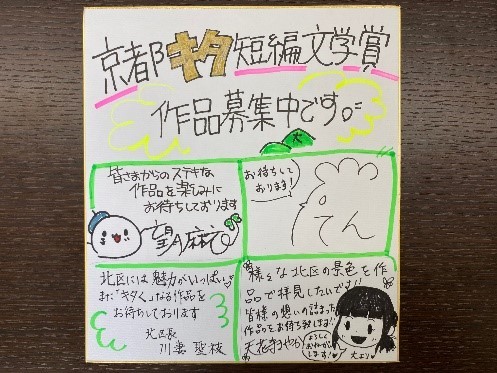 京都キタ短編文学賞
作品募集中です。
大
皆さまからのステキな
作品を楽しみに
お待ちしております
お待ちして
おります!
てん
北区には魅力がいっぱい
また「キタく」なる作品を
お待ちしております
北区長
川妻 聖枝
様々な北区の景色を作
品で拝見したいです!!
皆様の想いの詰まった
作品をお待ち致します!!
よろしく
おねがい
します!